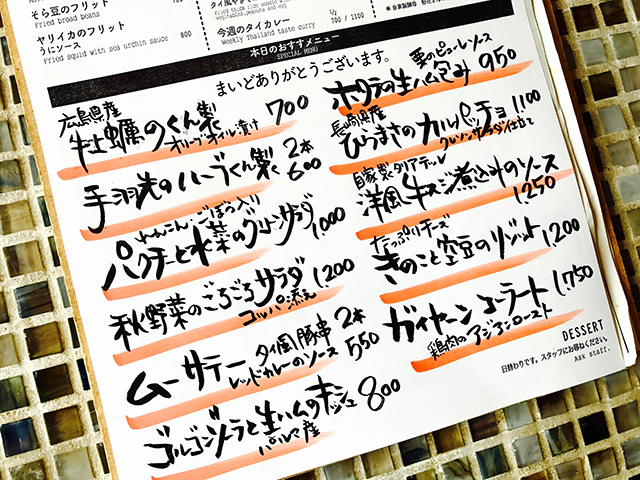 そら豆のフリット
Fried broad beans
ヤリイカのフリット
うにソース
Fried squid with sea urchin sauce
800
vegetables, peanuts and
今週のタイカレー
Weekly Thailand taste curry
1/2
700 / 1100
本日のおすすめメニュー
SPECIAL MENU
まいどありがとうございます。
広島県産
牡蠣のくん製 700
オリーブオイル漬け
手羽先のハーブくん製 2本 600
れんこん・ごぼう入り
パクチーと水菜のグリーンサラダ 1,000
秋野菜のごろごろサラダ 1,200
コッパ添え
ムーサテー タイ風豚串 2本
レッドカレーのソース 550
ゴルゴンゾーラと生ハムのキッシュ 800
パルマ産
栗のピューレソース
ホタテの生ハム包み 950
長崎県産
ひらまさのカルパッチョ 1100
クレソンサラダ仕立て
自家製タリアテッレ
洋風牛スジ煮込みのソース
1,250
たっぷりチーズ
きのこと空豆のリゾット 1,200
ガイヤーン コーラート 1,750
鶏肉のアジアンロースト
DESSERT
日替わりです。スタッフにお尋ねください。
Ask staff.